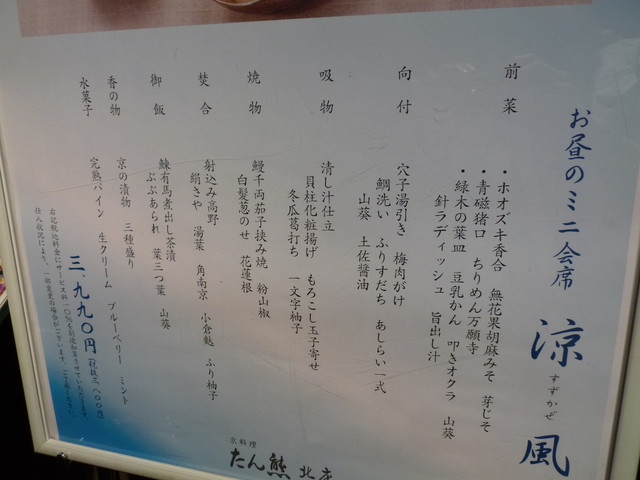 お昼のミニ会席 涼風
すずかぜ
前菜
・ホオズキ香合 無花果胡麻みそ 芽じそ
・青磁猪口 ちりめん万願寺
・緑木の葉皿 豆乳かん 叩きオクラ 山葵
針ラディッシュ 旨出し汁
向付
穴子湯引き 梅肉がけ
鯛洗い ふりすだち あしらい一式
山葵 土佐醤油
吸物
清し汁仕立
貝柱化粧揚げ もろこし玉子寄せ
冬瓜葛打ち 一文字柚子
焼物
鰻千両茄子挟み焼 粉山椒
白髪葱のせ 花蓮根
焚合
射込み高野 湯葉 角南京 小倉麩 ふり柚子
絹さや
御飯
鰊有馬煮出し茶漬
ぶぶあられ 葉三つ葉 山葵
香の物
京の漬物 三種盛り
水菓子
完熟パイン 生クリーム ブルーベリー ミント
三、九九〇円(税抜三、八〇〇円)
右記税込料金にサービス料一〇%を別途加算させていただきます。
仕入状況により、一部変更の場合がございます。ご了承ください。
京料理
たん熊 北店